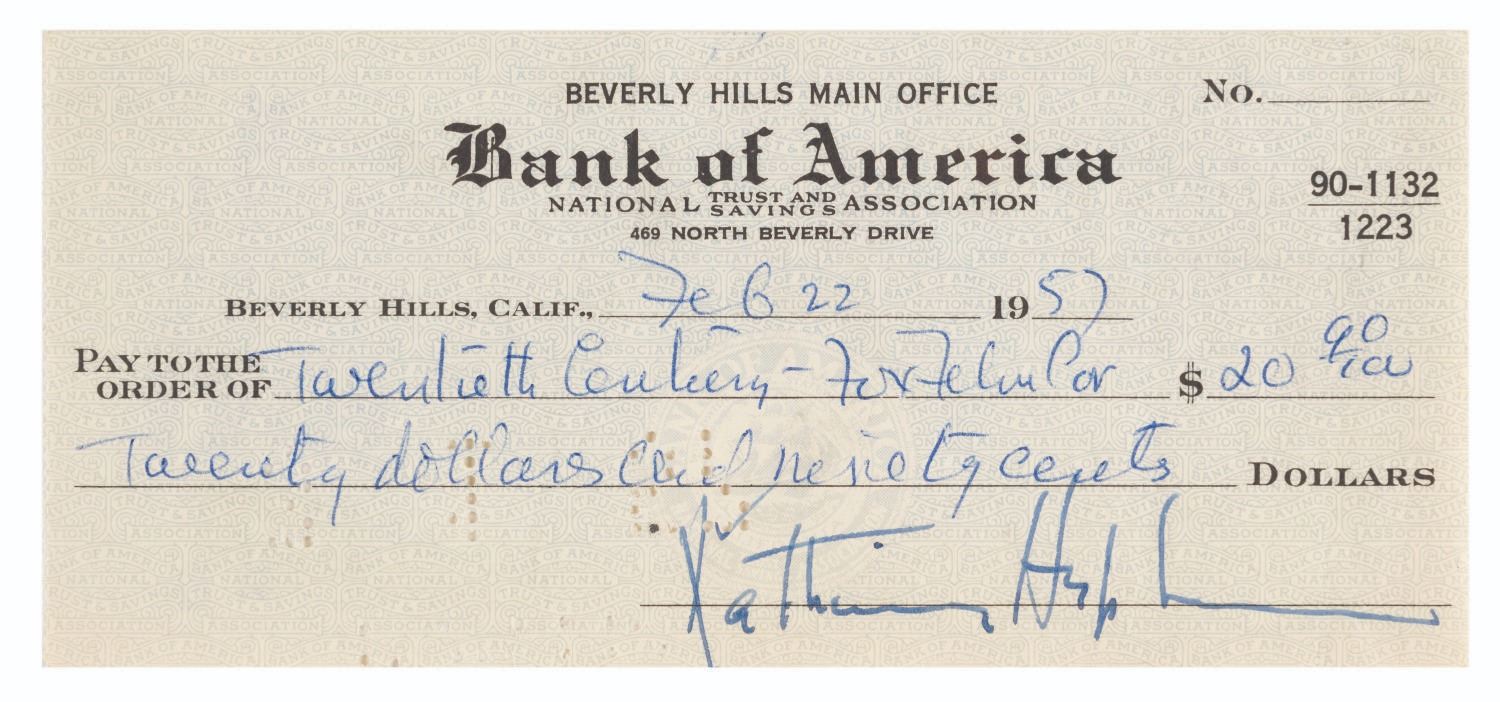 BEVERLY HILLS MAIN OFFICE
No.
Bank of America
NATIONAL TRUST AND SAVINGS ASSOCIATION
469 NORTH BEVERLY DRIVE
90-1132
1223
BEVERLY HILLS, CALIF., Feb 22 1957
PAY TO THE ORDER OF Twentieth Century-Fox Film Cor $ 20 90/100
Twenty dollars and ninety cents DOLLARS
Katharine Hepburn